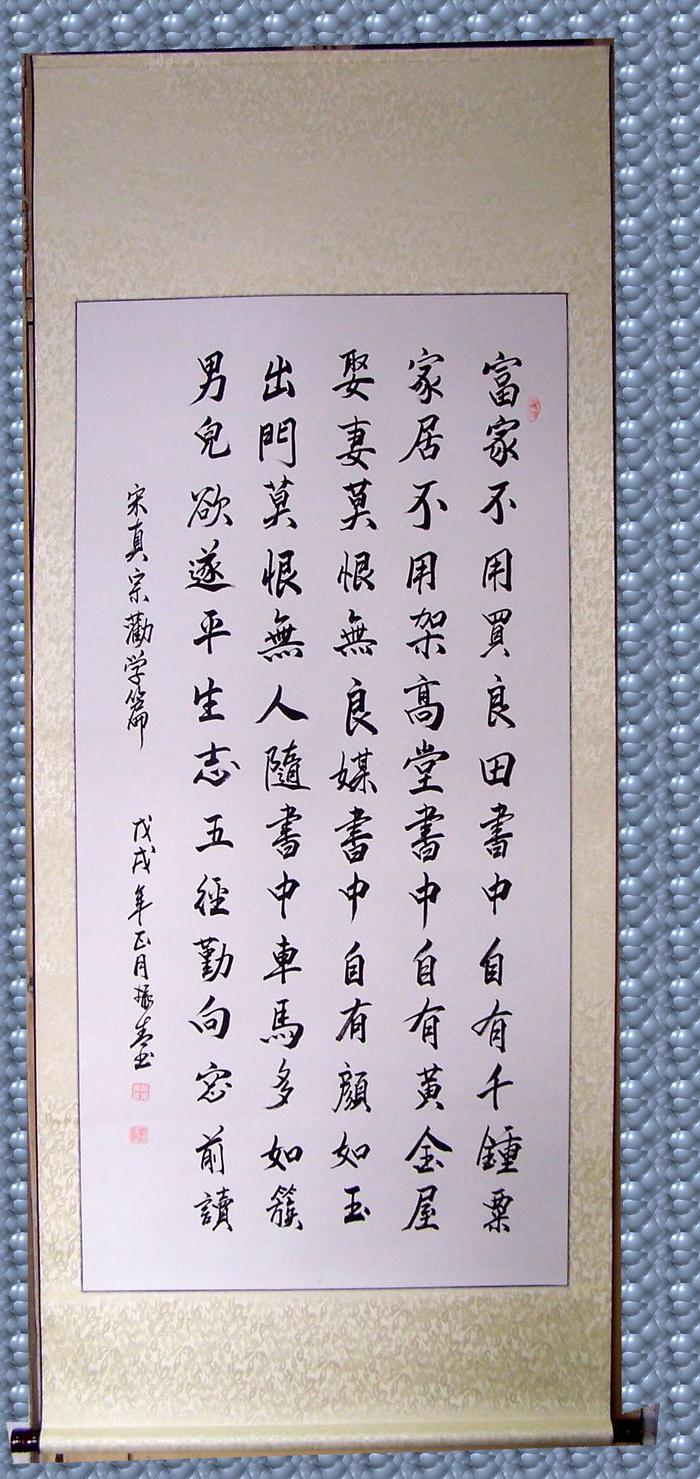 富家不用買良田書中自有千鍾粟
家居不用架髙堂書中自有黄金屋
娶妻莫恨無良媒書中自有顔如玉
出門莫恨無人隨書中車馬多如簇
男兒欲遂平生志五徑勤向窓前讀
宋真宗勸学篇
戊戌年正月振